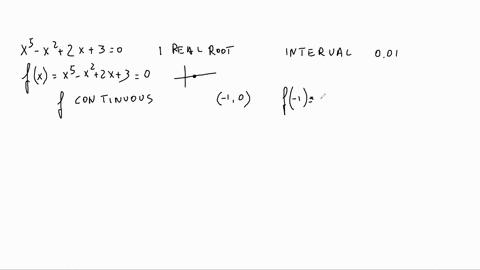 x⁵-x²+2x+3=0 1 REAL ROOT INTERVAL 0.01
f(x)=x⁵-x²+2x+3=0
f CONTINUOUS (-1,0) f(-1)=